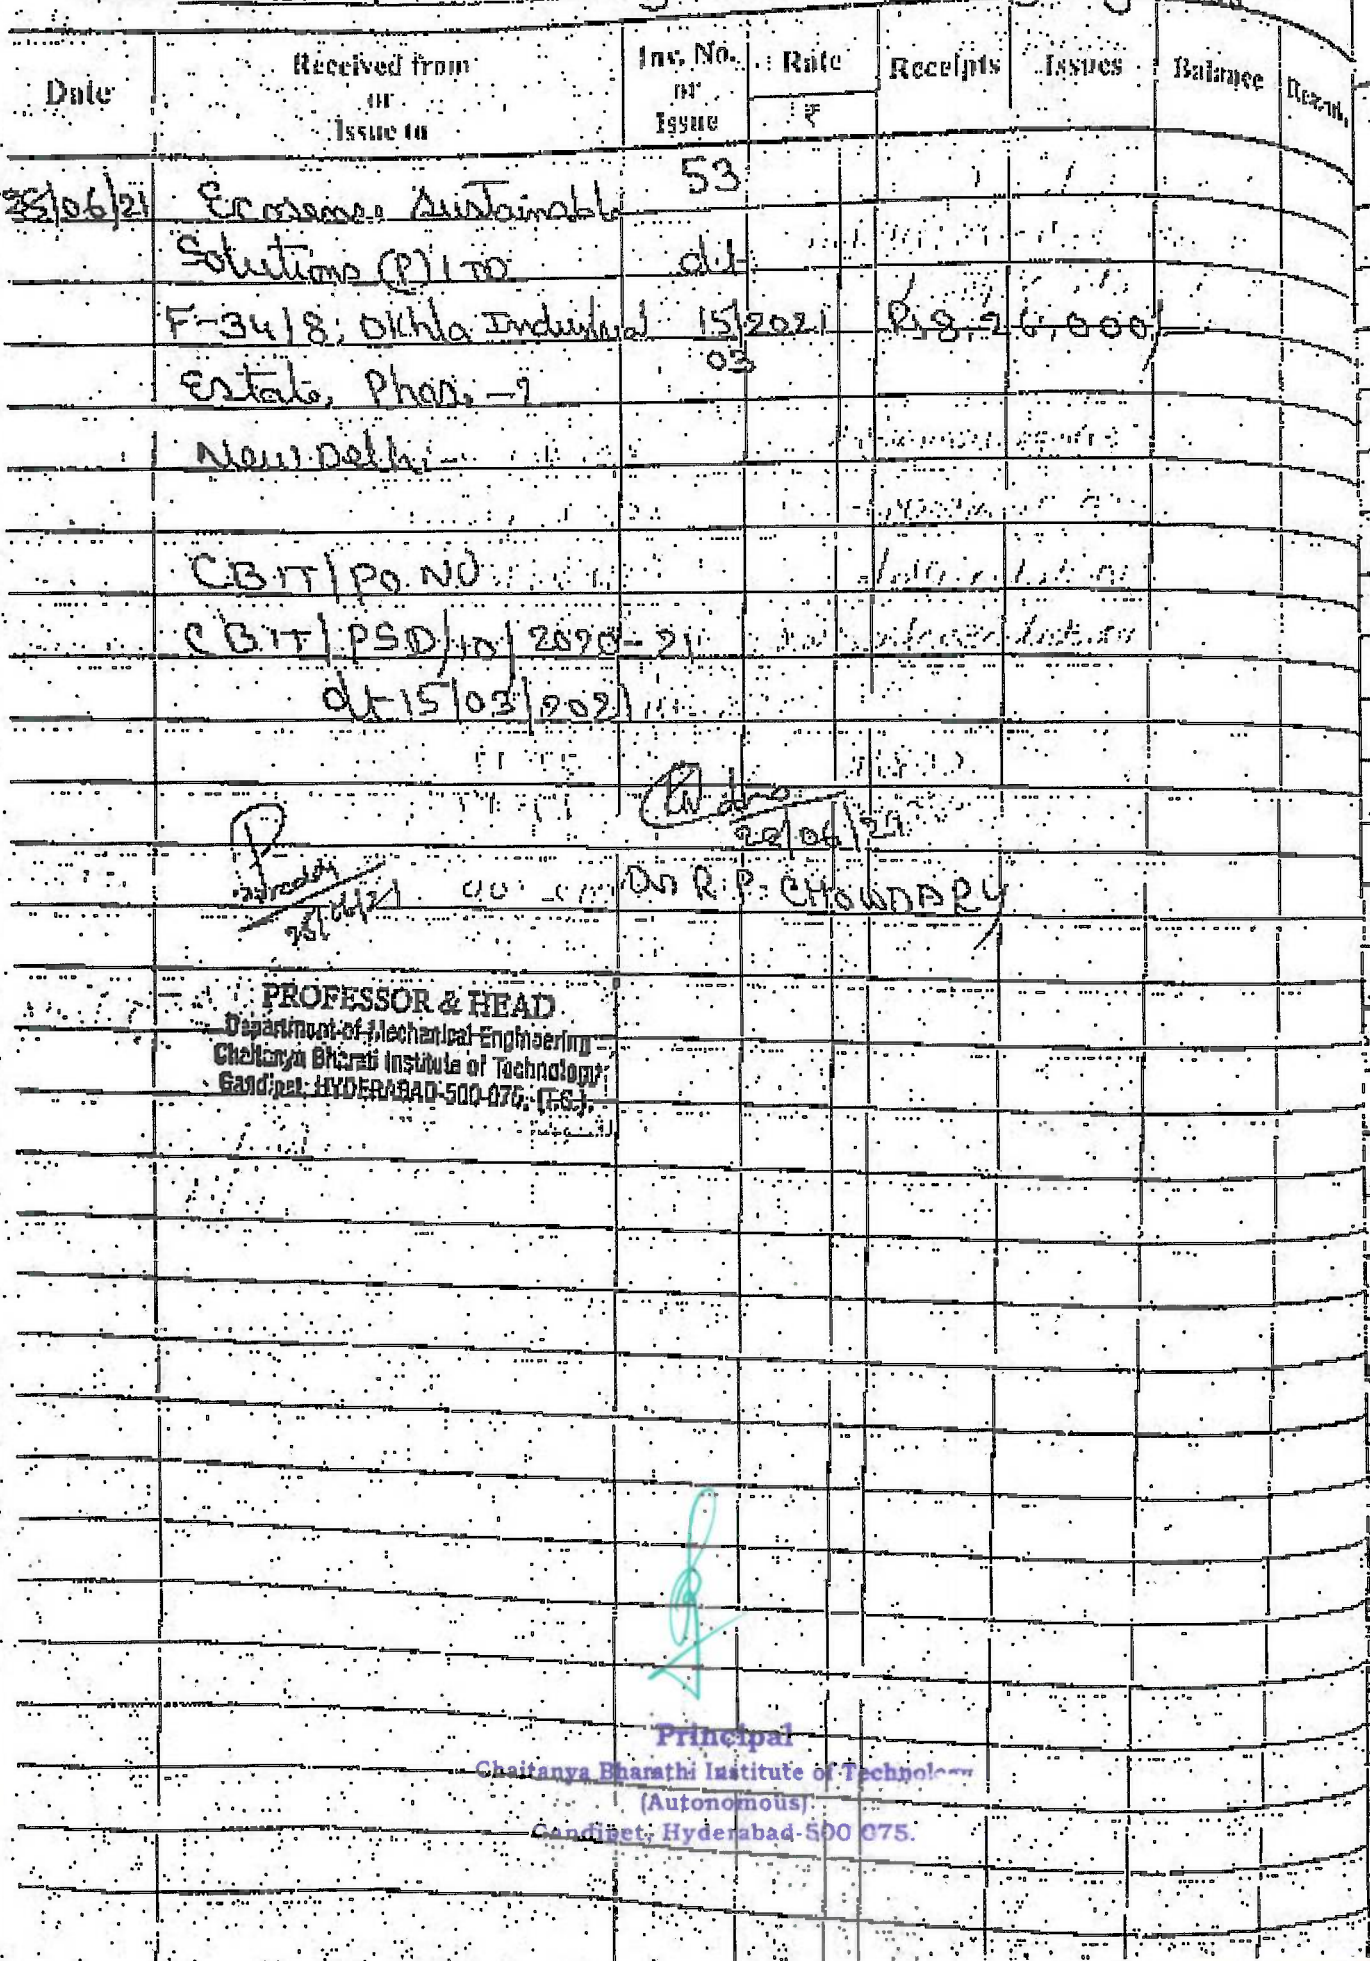 Date
Received from
or
Issue to
Inv. No.
or
Issue
Rate
₹
Receipts
Issues
Balance
53
/06/21 Ecosense Sustainable
Solutions (P) LTD dt
F-34/8, Okhla Industrial 15/2021 Rs 8,26,000/
03
Estate, Phase-2
New Delhi
CBIT/PO.NO
CBIT/PSD/10/2020-21
dt 15/03/2021
/06/21
Dr R.P. CHOWDARY
PROFESSOR & HEAD
Department of Mechanical Engineering
Chaitanya Bharati Institute of Technology
Gandipet, HYDERABAD-500 075. (T.S.).
Principal
Chaitanya Bharathi Institute of Technology
(Autonomous)
Gandipet, Hyderabad-500 075.